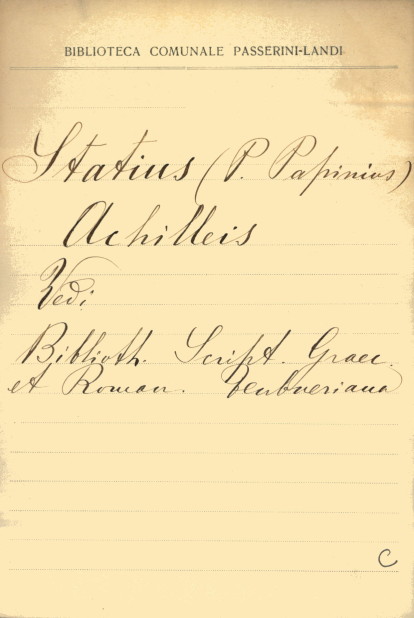 BIBLIOTECA COMUNALE PASSERINI-LANDI
Statius (P. Papinius)
Achilleis
Vedi
Biblioth. Script. Graec.
et Roman. Teubneriana
C